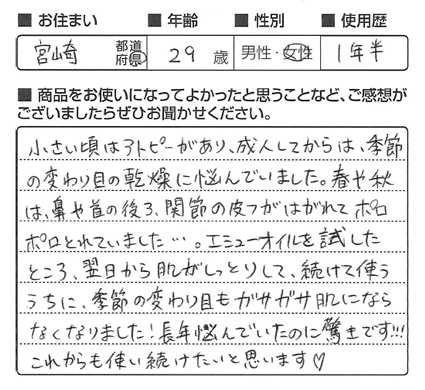 ■お住まい ■年齢 ■性別 ■使用歴
宮崎 都道府県 29 歳 男性・女性 1年半
■商品をお使いになってよかったと思うことなど、ご感想が
ございましたらぜひお聞かせください。
小さい頃はアトピーがあり、成人してからは、季節
の変わり目の乾燥に悩んでいました。春や秋
は、鼻や首の後ろ、関節の皮フがはがれてポロ
ポロとれていました…。エミューオイルを試した
ところ、翌日から肌がしっとりして、続けて使う
うちに、季節の変わり目もガサガサ肌になら
なくなりました!長年悩んでいたのに驚きです!!!
これからも使い続けたいと思います♡